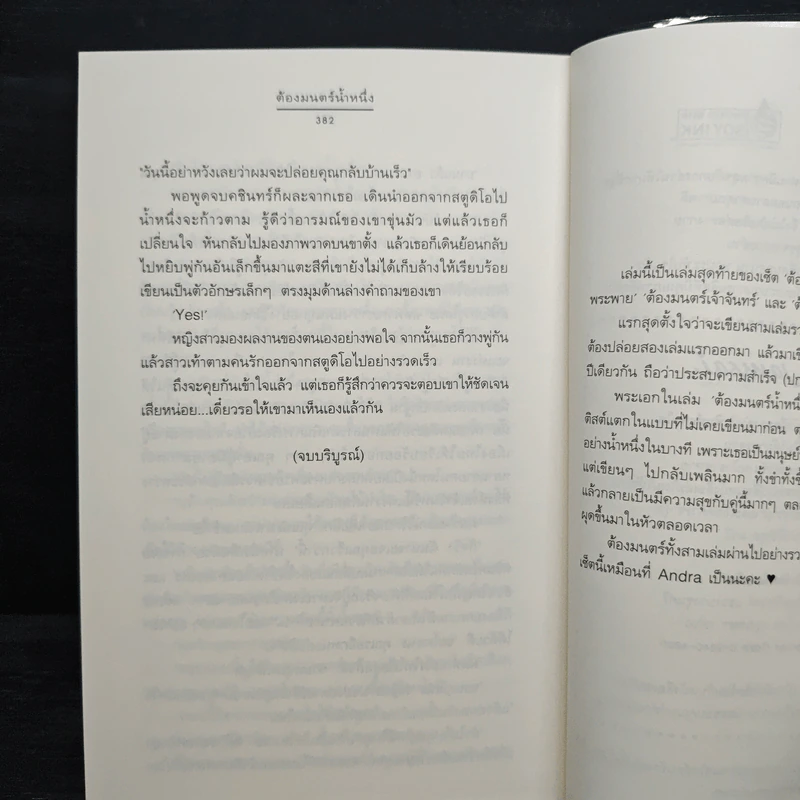 ต้องมนตร์น้ำหนึ่ง
382
"วันนี้อย่าหวังเลยว่าผมจะปล่อยคุณกลับบ้านเร็ว"
พอพูดจบคชินทร์ก็ผละจากเธอ เดินนำออกจากสตูดิโอไป
น้ำหนึ่งจะก้าวตาม รู้ดีว่าอารมณ์ของเขาขุ่นมัว แต่แล้วเธอก็
เปลี่ยนใจ หันกลับไปมองภาพวาดบนขาตั้ง แล้วเธอก็เดินย้อนกลับ
ไปหยิบพู่กันอันเล็กขึ้นมาแตะสีที่เขายังไม่ได้เก็บล้างให้เรียบร้อย
เขียนเป็นตัวอักษรเล็กๆ ตรงมุมด้านล่างคำถามของเขา
'Yes!'
หญิงสาวมองผลงานของตนเองอย่างพอใจ จากนั้นเธอก็วางพู่กัน
แล้วสาวเท้าตามคนรักออกจากสตูดิโอไปอย่างรวดเร็ว
ถึงจะคุยกันเข้าใจแล้ว แต่เธอก็รู้สึกว่าควรจะตอบเขาให้ชัดเจน
เสียหน่อย...เดี๋ยวรอให้เขามาเห็นเองแล้วกัน
(จบบริบูรณ์)
เล่มนี้เป็นเล่มสุดท้ายของเซ็ต 'ต้อ
พระพาย' 'ต้องมนตร์เจ้าจันทร์' และ 'ต้
แรกสุดตั้งใจว่าจะเขียนสามเล่มรว
ต้องปล่อยสองเล่มแรกออกมา แล้วมาเขี
ปีเดียวกัน ถือว่าประสบความสำเร็จ (ปก
พระเอกในเล่ม 'ต้องมนตร์น้ำหนึ่
ติสต์แตกในแบบที่ไม่เคยเขียนมาก่อน ต
อย่างน้ำหนึ่งในบางที เพราะเธอเป็นมนุษย์
แต่เขียนๆ ไปกลับเพลินมาก ทั้งขำทั้งขื
แล้วกลายเป็นมีความสุขกับคู่นี้มากๆ ตล
ผุดขึ้นมาในหัวตลอดเวลา
ต้องมนตร์ทั้งสามเล่มผ่านไปอย่างรว
เซ็ตนี้เหมือนที่ Andra เป็นนะคะ ♥